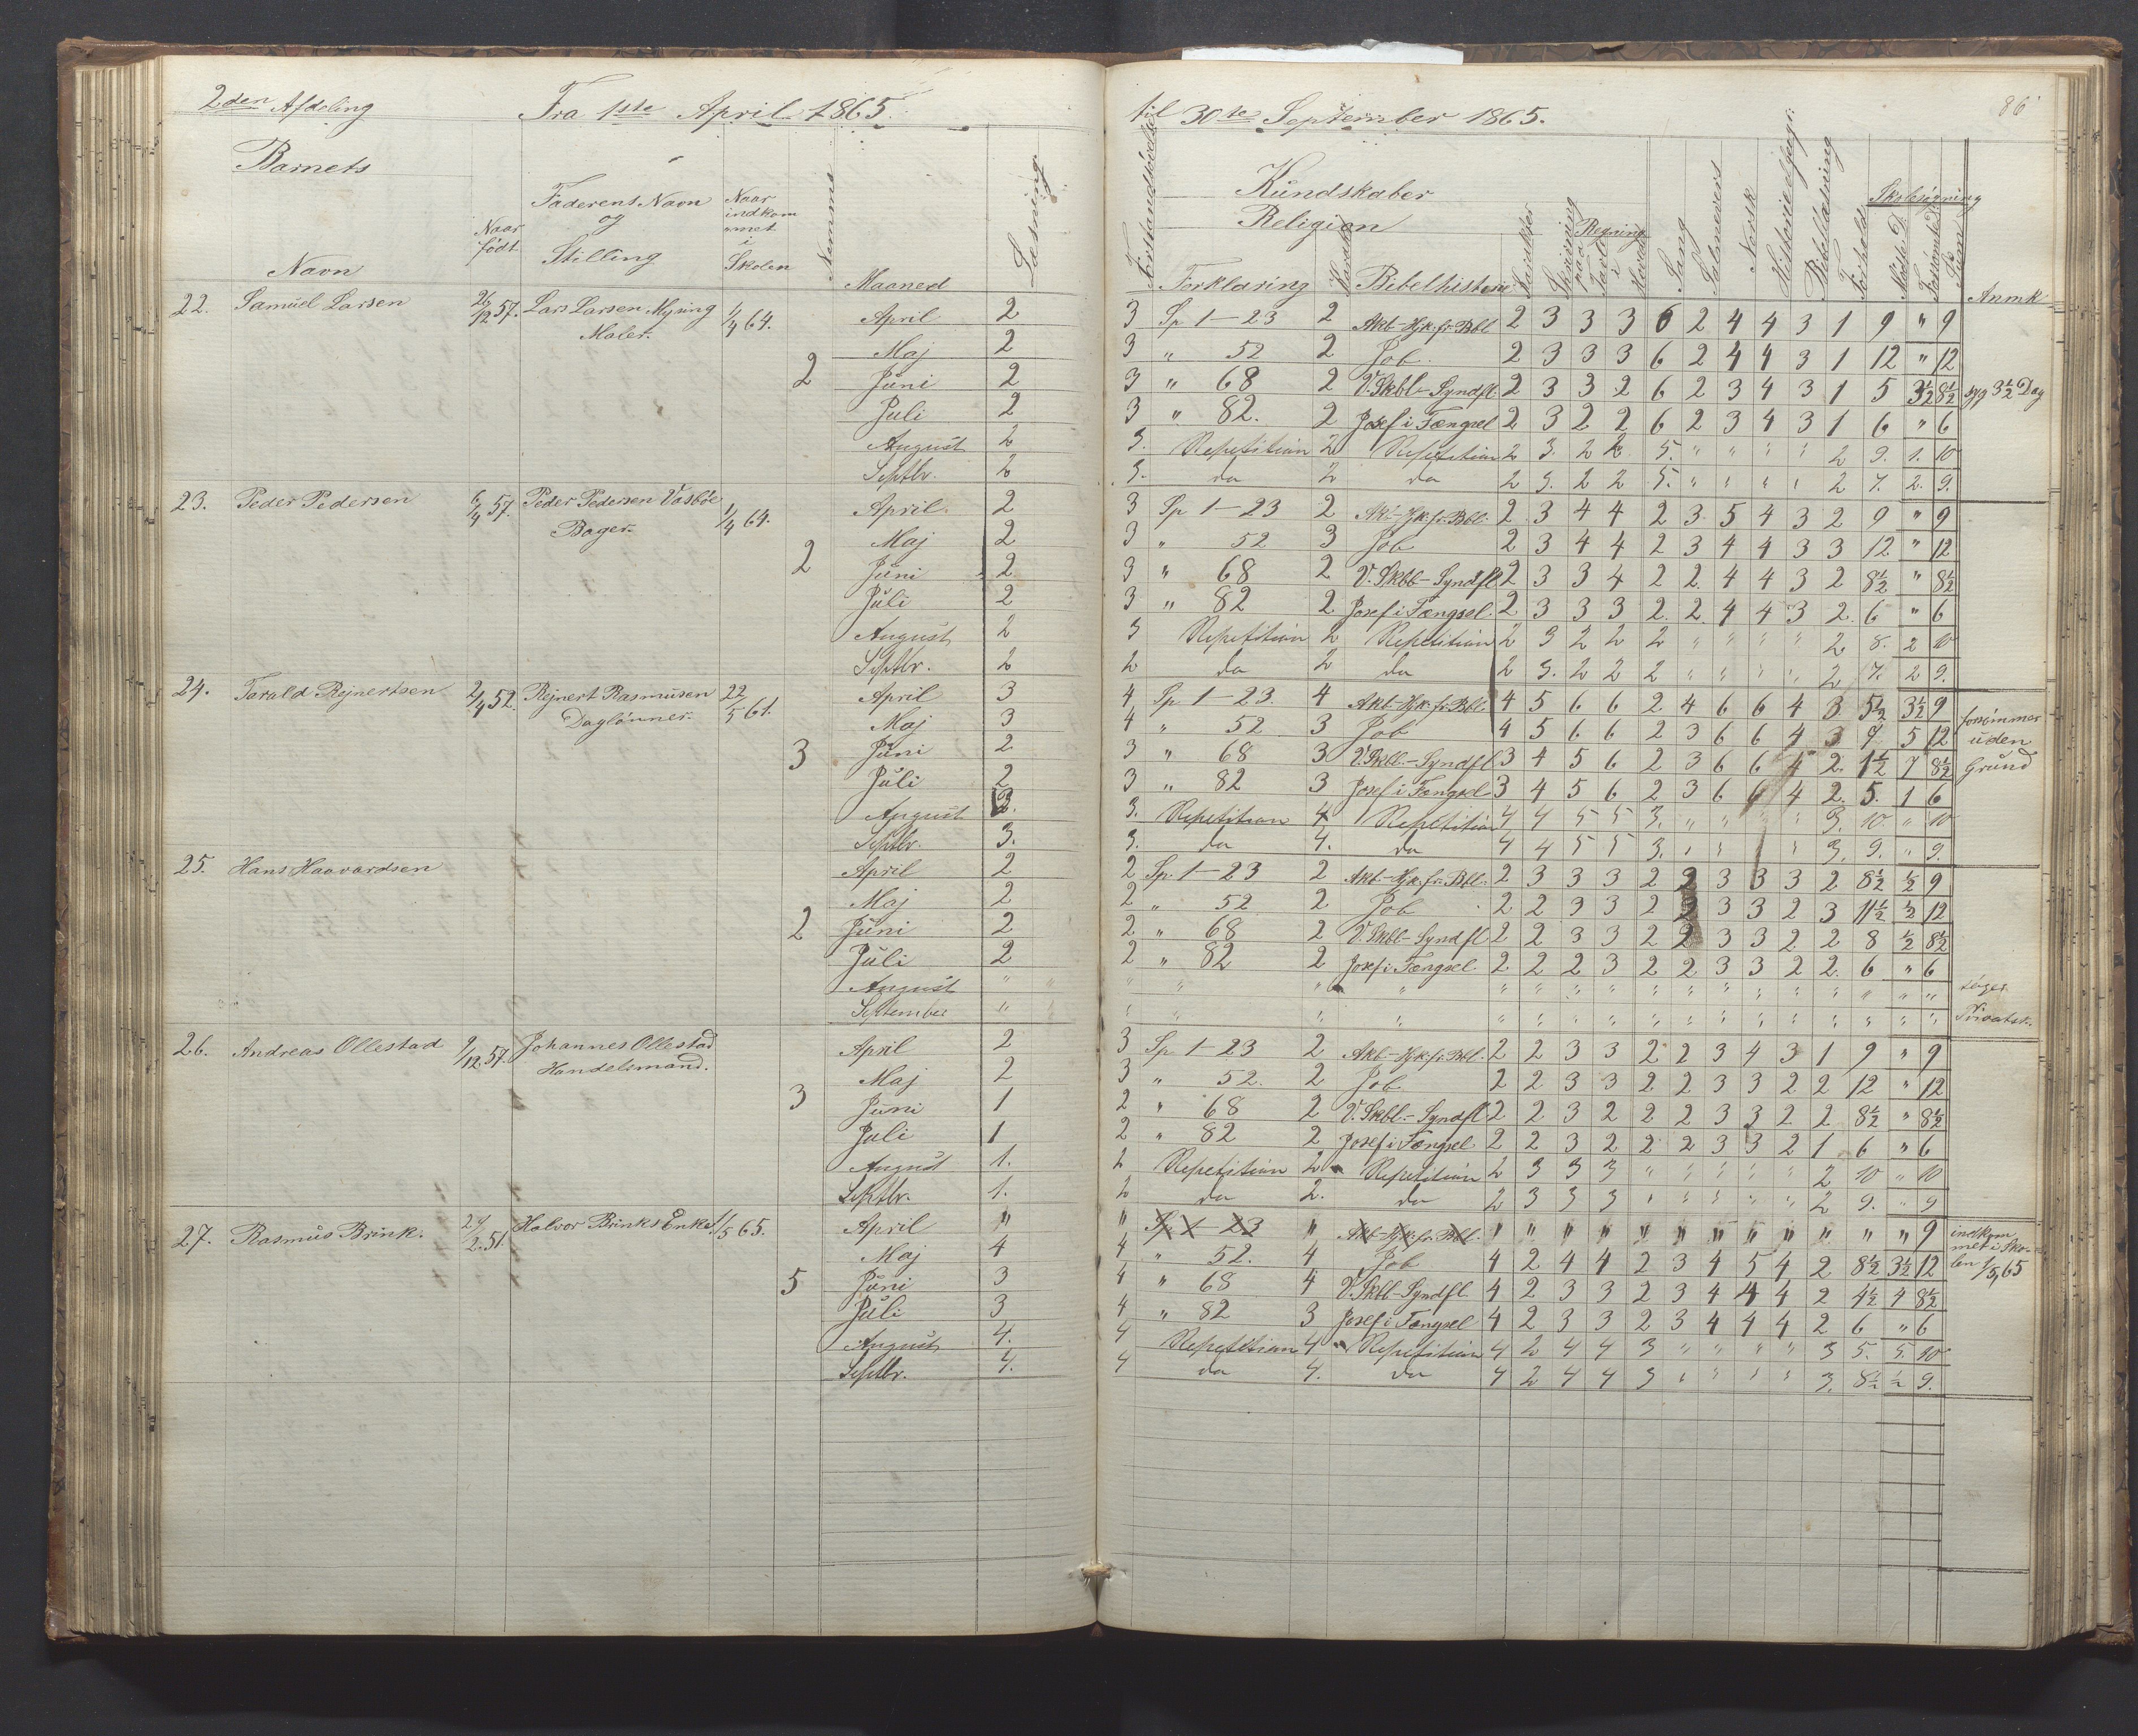 2den Afdeling Fra 1ste April 1865. til 30te September 1865. 86
Barnets Kundskaber Skolesøgning
Navn Naar født Faderens Navn og Stilling Naar indkommet i Skolen Nemme Maaned Læsning Forstandsøvelse Religion Forklaring Karakt Bibelhistorie Karakter Skrivning Regning paa Tavle i Hovedet Sang Salmevers Norsk Historie Bibellæsning Forhold Mødte D. Forsømte D. Sum Anmk
22. Samuel Larsen 26/12 57. Lars Larsen Myning 1/4 64. 2 April 2 3 Sp. 1–23 2 Akt–Hjk. fr. Bbl 2 3 3 3 6 2 4 4 3 1 9 " 9
Maler. Maj 2 3 " 52 2 Job. 2 3 3 3 6 2 4 4 3 1 12 " 12
Juni 2 3 " 68 2 V. Skbl–Syndfl. 2 3 3 2 6 2 3 4 3 1 5 3½ 8½ syg 3½ Dag
Juli 2 3 " 82. 2 Josef i Fængsel 2 3 2 2 6 2 3 4 3 1 6 " 6
August 2 3. Repetition 2 Repetition 2 3. 2 2 5. " " " " 2 9. 1. 10
Septbr. 2 3. do 2 do 2 3. 2 2 5. " " " " 2 7. 2. 9.
23. Peder Pedersen 6/4 57. Peder Pedersen Vasbøe 1/4 64. 2 April. 2 3 Sp 1–23 2 Akt–Hjk. fr. Bbl. 2 3 4 4 2 3. 5 4 3 2 9 " 9
Bager. Maj 2 3 " 52 3 Job 2 3 4 4 2 3 4 4 3 3 12 " 12
Juni 2 3 " 68 2 V. Skbl–Syndfl 2 3 3 4 2 2. 4 4 3 2 8½ " 8½
Juli 2 3 " 82 2 Josef i Fængsel. 2 3 3 3 2. 2 4 4 3 2. 6 " 6
August 2 3 Repetition 2 Repetition 2 3 2 2 2 " " " " 2 8. 2 10
Septbr. 2 2 do 2 do 2 3. 2 2 2 " " " " 2 7. 2 9.
24. Torald Rejnertsen 2/4 52. Rejnert Rasmusen 22/5 61. 3 April 3 4 Sp. 1–23. 4 Akt–Hjk. fr. Bbl. 4 5 6 6 2 4 6 6 4 3 5½ 3½ 9 forsømmer
Daglønner. Maj 3 4 " 52 3 Job 4 5 6 6 2 3 6 6 4 3 7 5 12 uden
Juni 2 3 " 68 3 V. Skbl.–Syndfl 3 4 5 6 2 3 6 6 4 2. 1½ 7 8½ Grund
Juli 2 3 " 82 3 Josef i Fængsel 3 4 5 6 2 3 6 6 4 2. 5. 1 6
August 3. 3. Repetition 4 Repetition 4 4 5 5 3. " " " " 3. 10 " 10
Septbr. 3. 3. do 4. do 4 4 5 5 3. " " " " 3. 9. " 9.
25. Hans Haavardsen 2 April 2 2 Sp. 1–23 2 Akt–Hjk. fr. Bbl. 2 3 3 3 2 2 3 3 3 2 8½ ½ 9
Maj 2 2 " 52 2 Job 2 2 3 3 2 3 3 3 2 3 11½ ½ 12
Juni 2 2 " 68 2 V. Skbl–Syndfl 2 2 3 3 2 2 3 3 2 2 8 ½ 8½
Juli 2 2 " 82 2 Josef i Fængsel. 2 2 2 3 2 2 3 3 2 2. 6 " 6
August " " " " " " " " " " " " " " " " " " søger
September " " " " " " " " " " " " " " " " " " Privatsk.
26. Andreas Ollestad 9/12 57. Johannes Ollestad 3 April 2 3 Sp 1–23 2 Akt–Hjk. fr. Bbl. 2 2 3 3 2 2 3 4 3 1 9 " 9
Handelsmand. Maj 2 3 " 52. 2 Job 2 2 3 3 2 2 3 3 2 2 12 " 12
Juni 1 2 " 68 2 V. Skbl.–Syndfl. 2 2 3 2 2 2 3 3 2 2 8½ " 8½
Juli 1 2 " 82 2 Josef i Fængsel. 2 2 3 2 2 2 3 3 2 1 6 " 6
August 1. 2 Repetition 2 Repetition 2 3 3 3 " " " " " 2 10 " 10
Septbr. 1. 2 do 2. do 2 3 3 3 " " " " " 2 9. " 9
27. Rasmus Brink. 24/2. 51. Halvor Brinks Enke 1/5 65. 5 April " " Sp 1–23 " Akt–Hjk. fr. Bbl. " " " " " " " " " " " " 9 indkom
Maj 4 4 " 52. 4 Job 4 2 4 4 2 3 4 5 4 2 8½ 3½ 12 met i Sko-
Juni 3 4 " 68 4 V. Skbl–Syndfl 4 2 3 3 2 3 4 4 4 2 4½ 4 8½ len 1/5, 65
Juli 3 4 " 82 3 Josef i Fængsel 4 2 3 3 2 3 4 4 4 2 6 " 6
August 4. 4 Repetition 4 Repetition 4 2 4 4 3 " " " " 3 5. 5. 10
Septbr. 4. 4 do 4. do 4 2 4 4 3 " " " " 3. 8½ ½ 9.